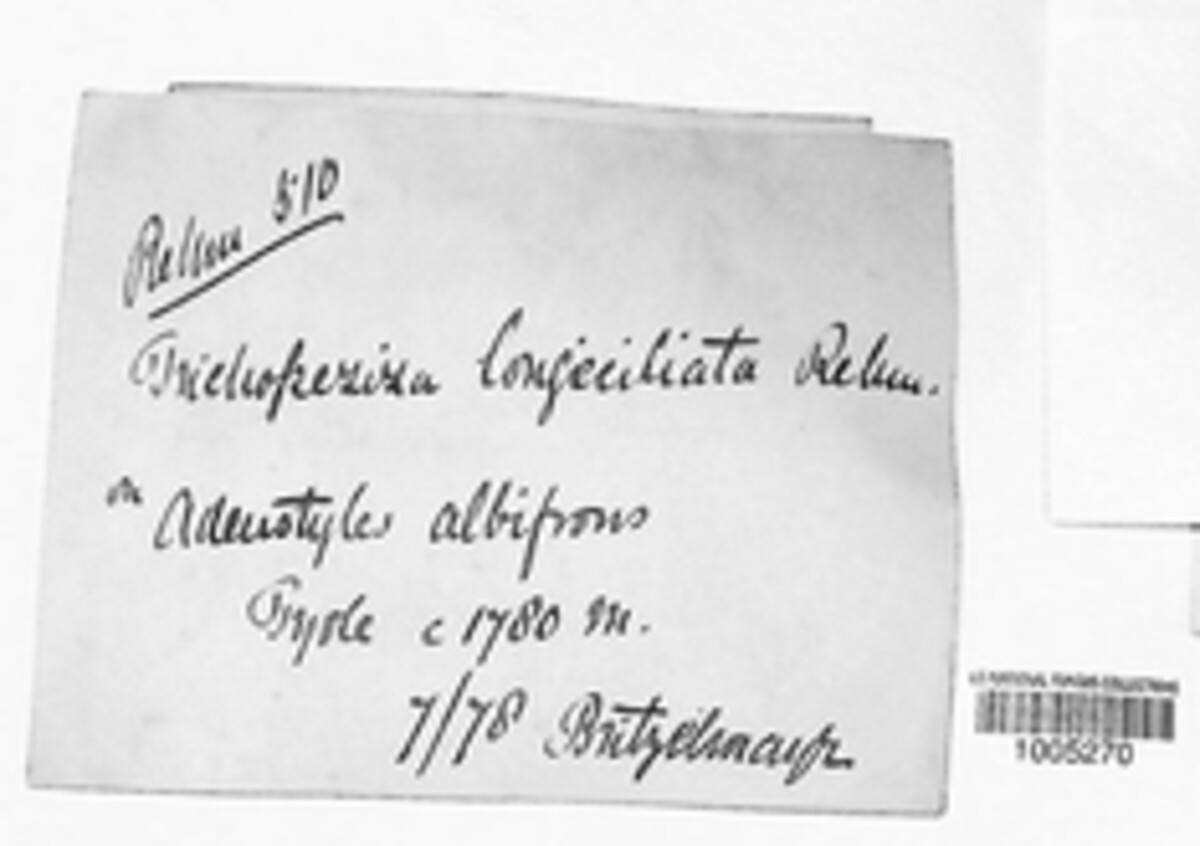 Rehm 510
Trichopeziza longiciliata Rehm.
on Adenostyles albifrons
Tyrole c 1780 m.
7/78 Britzelmayr
U.S. NATIONAL FUNGUS COLLECTIONS
1005270